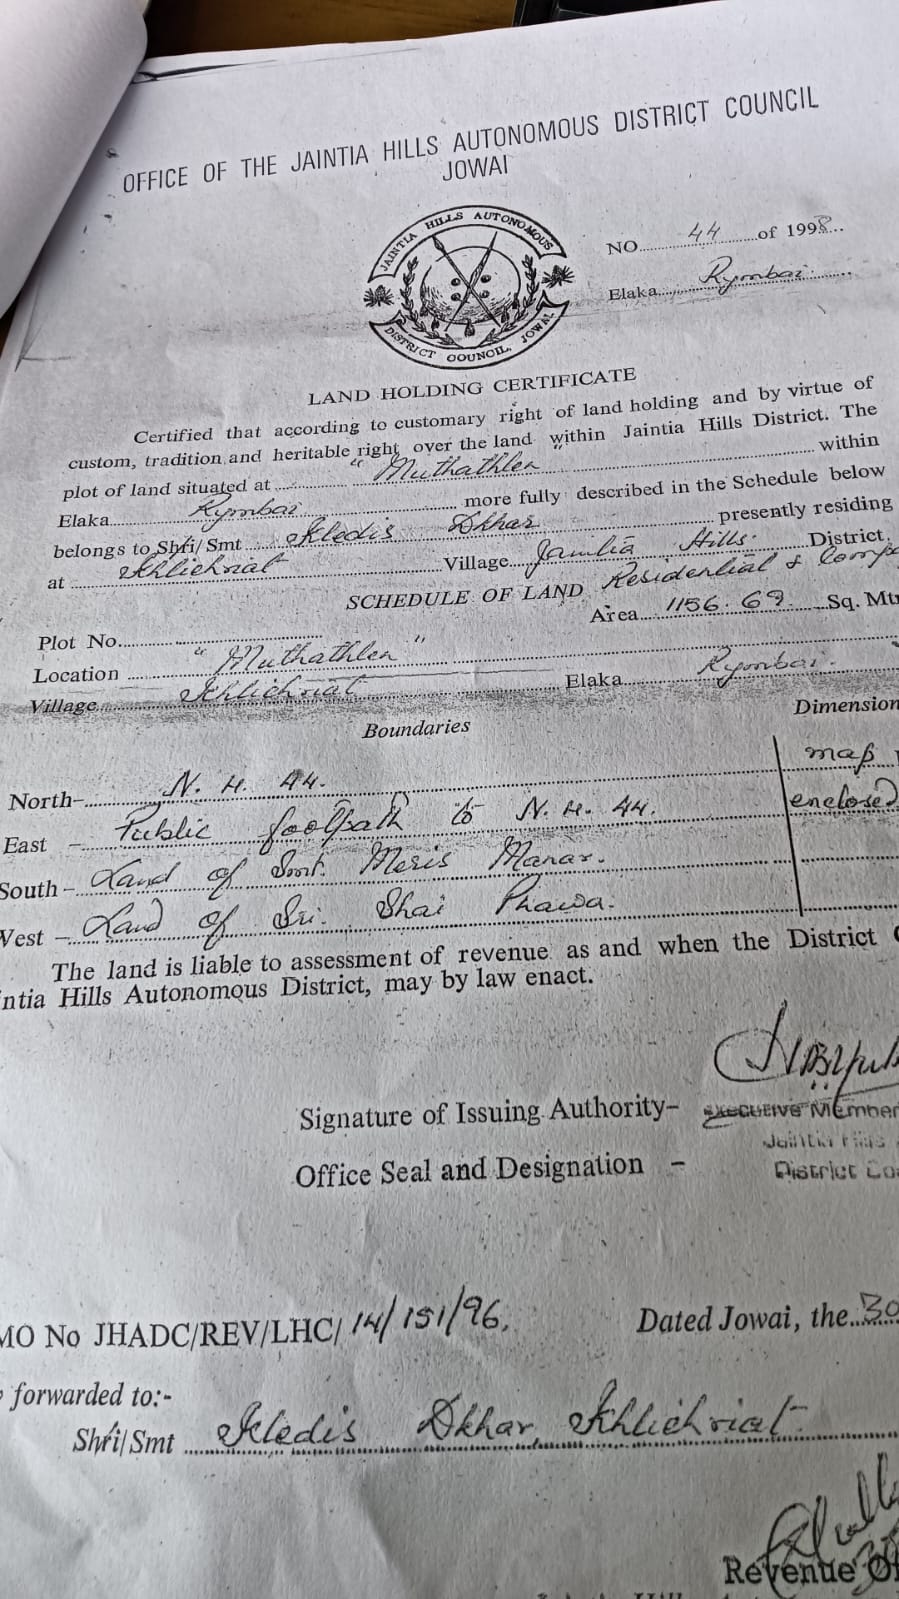 OFFICE OF THE JAINTIA HILLS AUTONOMOUS DISTRICT COUNCIL
JOWAI
JAINTIA HILLS AUTONOMOUS
DISTRICT COUNCIL, JOWAI
NO. 44 of 1998
Elaka Rymbai
LAND HOLDING CERTIFICATE
Certified that according to customary right of land holding and by virtue of
custom, tradition and heritable right over the land within Jaintia Hills District. The
plot of land situated at "Muthathlen" within
Elaka Rymbai more fully described in the Schedule below
belongs to Shri/Smt Skledis Dkhar presently residing
at Khliehriat Village Jaintia Hills. District.
SCHEDULE OF LAND Residential &
Plot No. Area 1156.69. Sq. Mt
Location "Muthathlen"
Village Khliehriat Elaka Rymbai.
Boundaries Dimension
North- N. H. 44. map
East - Public footpath to N. H. 44. enclosed
South - Land of Smt. Meris Manar.
West - Land of Sri. Shai Phawa.
The land is liable to assessment of revenue as and when the District
intia Hills Autonomous District, may by law enact.
Signature of Issuing Authority-
Executive Member
Jaintia Hills
Office Seal and Designation -
District Co
MO No JHADC/REV/LHC/14/151/96. Dated Jowai, the 30
forwarded to:-
Shri/Smt Skledis Dkhar, Khliehriat
Revenue Of